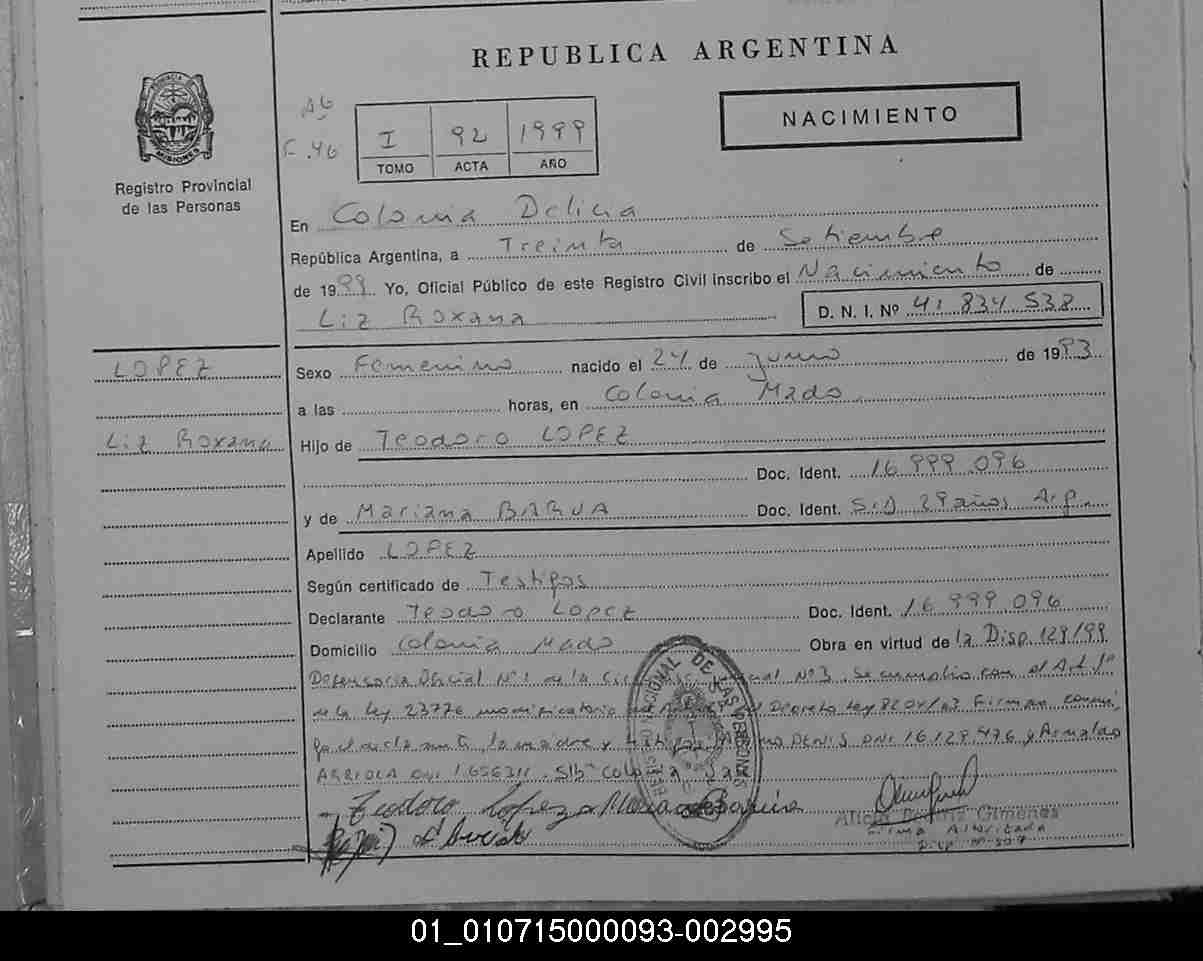 REPUBLICA ARGENTINA
PROVINCIA DE
MISIONES
Registro Provincial
de las Personas
F. 46
I 92 1999
TOMO ACTA AÑO
NACIMIENTO
En Colonia Delicia
República Argentina, a Treinta de Setiembre
de 1999 Yo, Oficial Público de este Registro Civil inscribo el Nacimiento de
Liz Roxana D. N. I. Nº 41 834 538
LOPEZ
Liz Roxana
Sexo Femenino nacido el 24 de Junio de 1993
a las horas, en Colonia Mado
Hijo de Teodoro LOPEZ
Doc. Ident. 16 999 096
y de Mariana BARUA Doc. Ident. S.I.D 29 años Arg.
Apellido LOPEZ
Según certificado de Testigos
Declarante Teodoro Lopez Doc. Ident. 16 999 096
Domicilio Colonia Mado Obra en virtud de la Disp. 129/99
Defensoria Oficial Nº 1 de la Nº 3. Se cumplio con el Art 1º
de la Ley 23776 modificatoria Decreto Ley 8204/63 Firman conmi
go el declarante, la madre y testigos DENIS DNI 16.129.476 y Arnaldo
ARRIOLA DNI
REGISTRO NACIONAL DE LAS PERSONAS
Teodoro Lopez
Alicia Beatriz Gimenez
Firma Autorizada
01_010715000093-002995